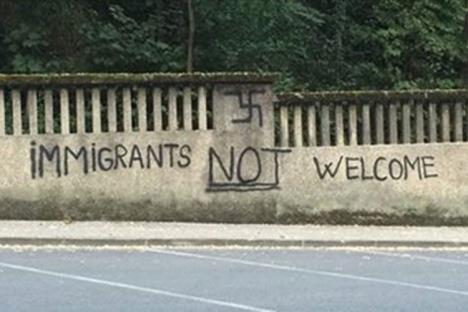 iMMiGRANTS NOT WELCOME